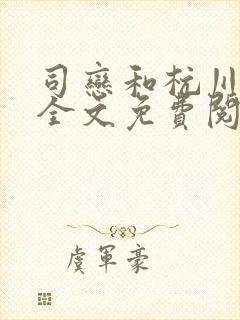 司戀和杭川
全文免費閱
虞軍豪